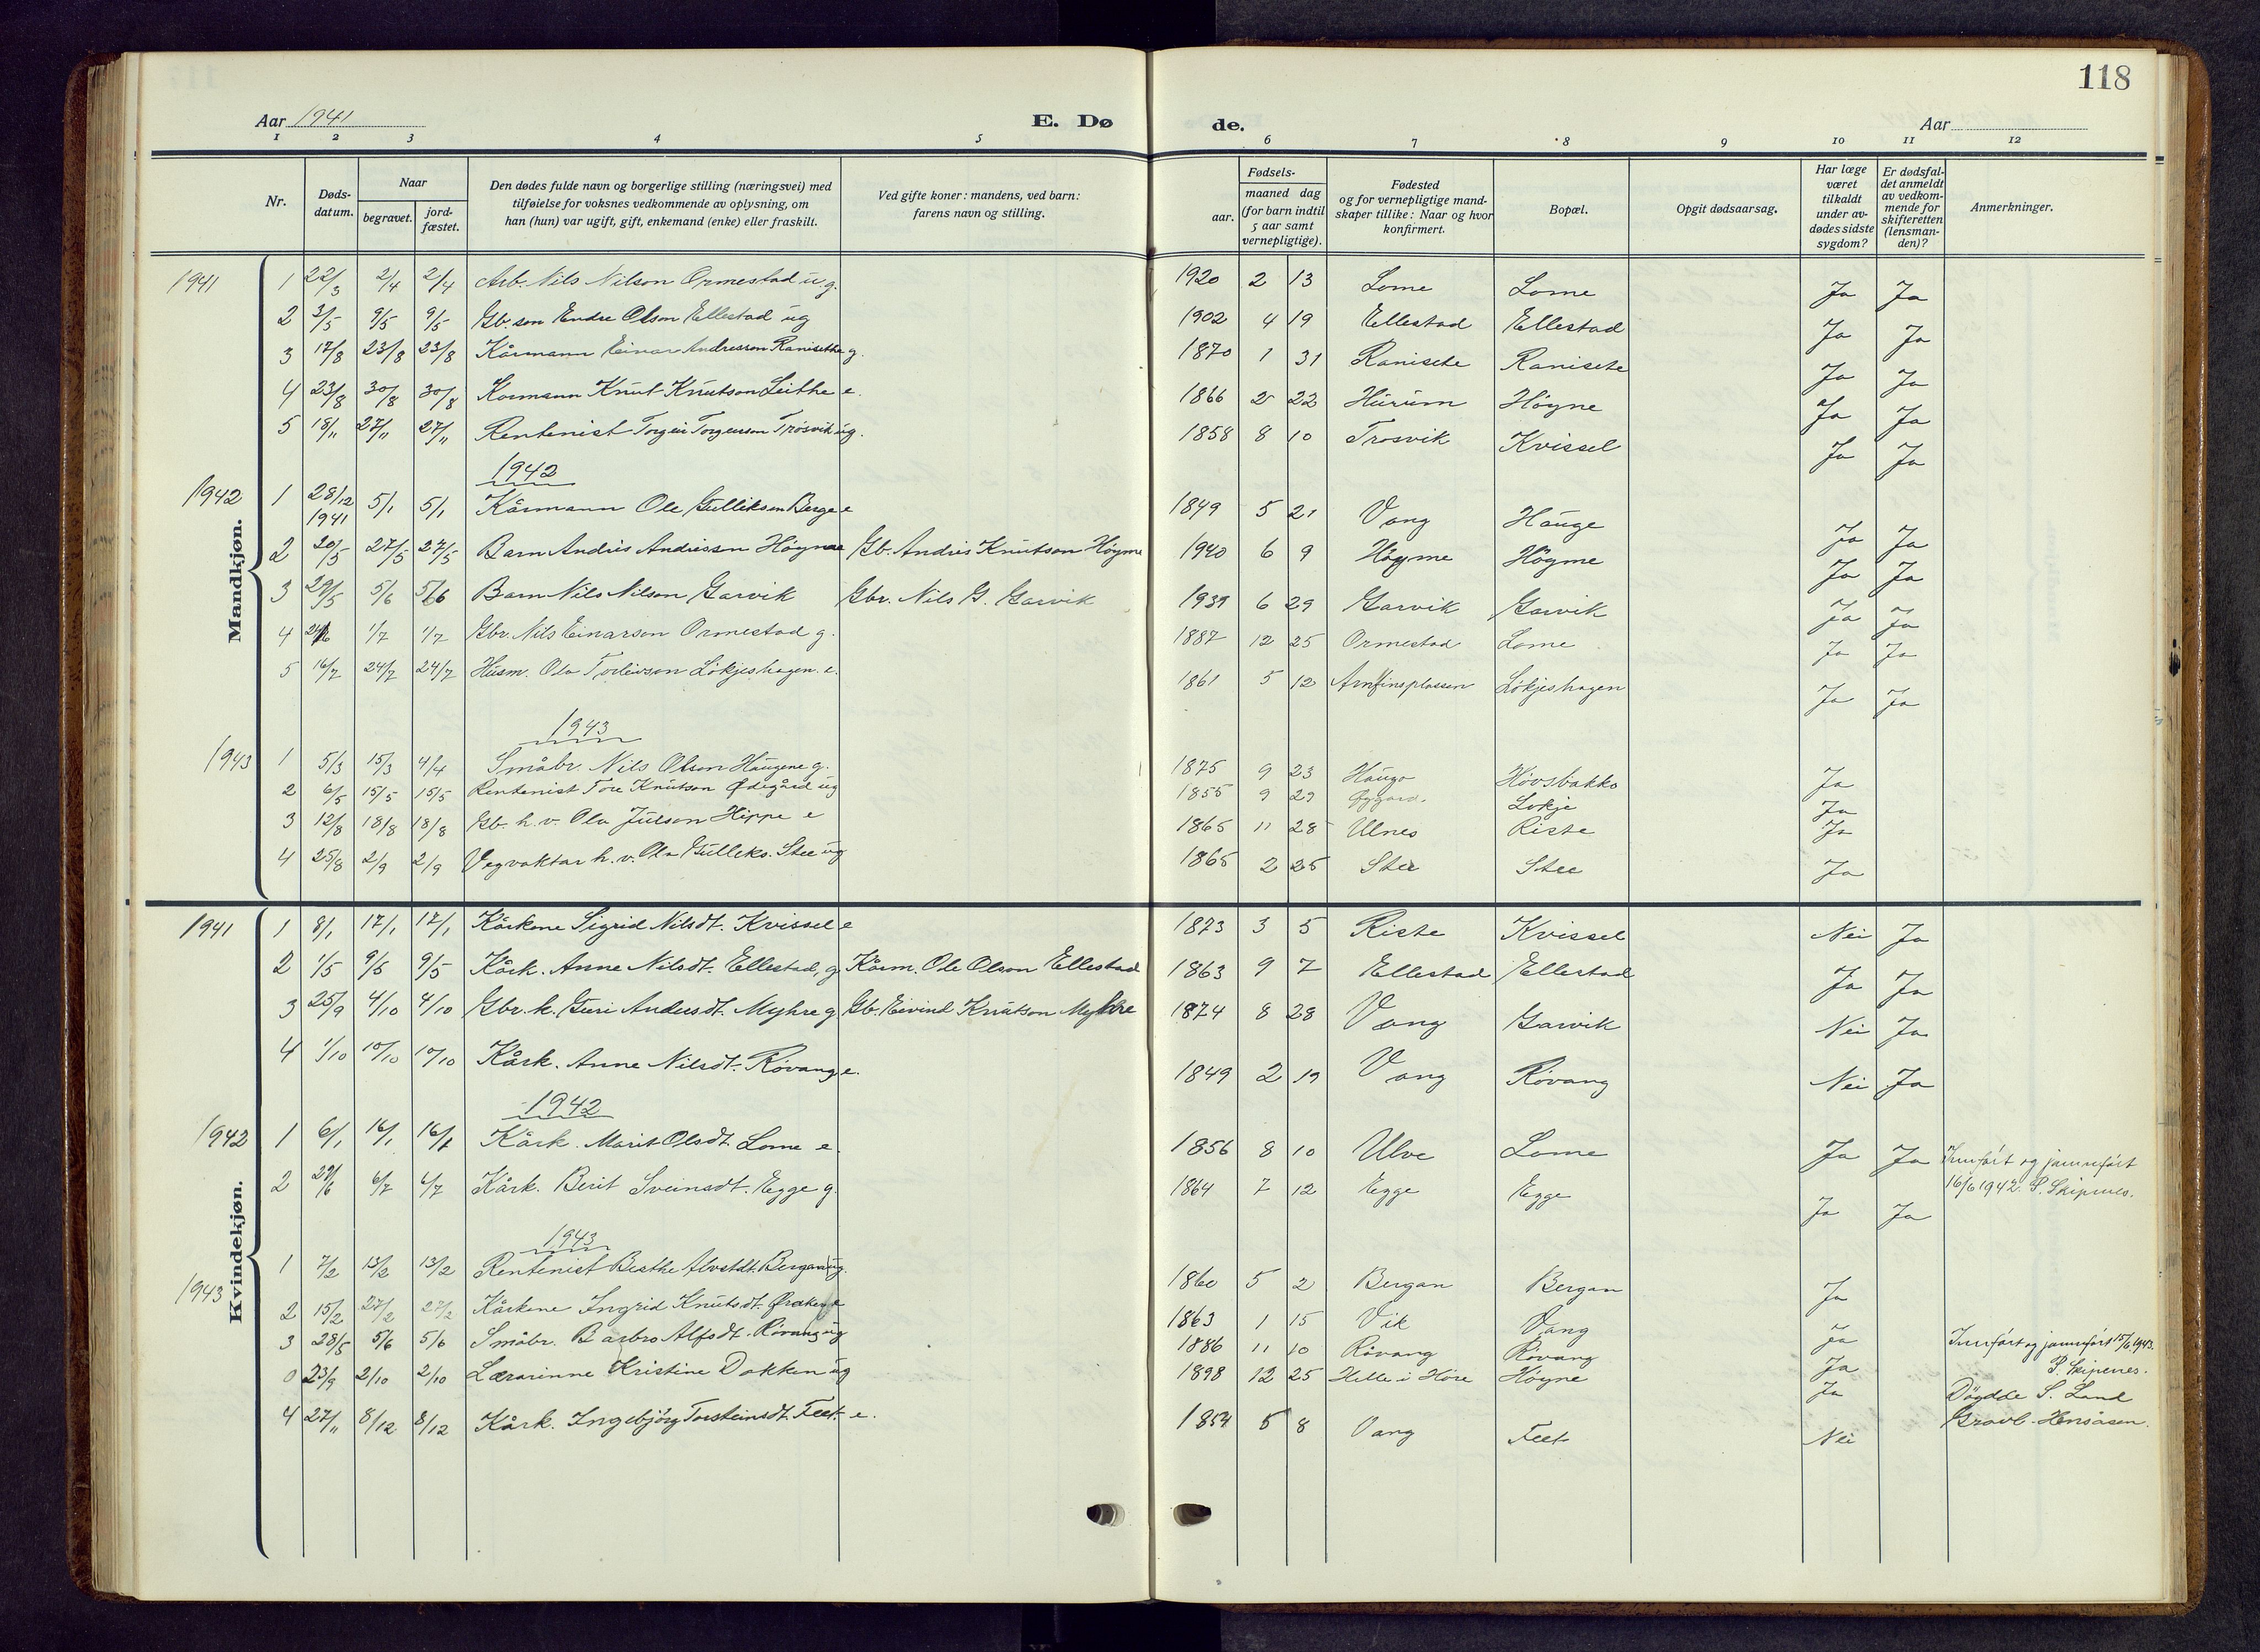 118
Aar 1941 E. Dø de. Aar
1 2 3 4 5 6 7 8 9 10 11 12
Nr. Døds-datum. Naar begravet. jord-fæstet. Den dødes fulde navn og borgerlige stilling (næringsvei) med tilføielse for voksnes vedkommende av oplysning, om han (hun) var ugift, gift, enkemand (enke) eller fraskilt. Ved gifte koner: mandens, ved barn: farens navn og stilling. Fødsels- aar. maaned dag (for barn indtil 5 aar samt vernepligtige). Fødested og for vernepligtige mand-skaper tillike: Naar og hvor konfirmert. Bopæl. Opgit dødsaarsag. Har læge været tilkaldt under av-dødes sidste sygdom? Er dødsfal-det anmeldt av vedkom-mende for skifteretten (lensman-den)? Anmerkninger.
Mandkjøn.
1941 1 22/3 2/4 2/4 Arb. Nils Nilson Ormestad ug. 1920 2 13 Lome Lome Ja Ja
2 3/5 9/5 9/5 Gb. son Endre Olson Ellestad ug 1902 4 19 Ellestad Ellestad Ja Ja
3 17/8 23/8 23/8 Kårmann Einar Andresson Ranisethe g. 1870 1 31 Ranisete Ranisete Ja Ja
4 23/8 30/8 30/8 Kormann Knut Knutson Leithe e. 1866 2 22 Hurum Högne Ja Ja
5 18/11 27/11 27/11 Rentenist Torgeir Torgeirson Trösvik ug. 1858 8 10 Trosvik Kvissel Ja Ja
1942
1942 1 28/12 1941 5/1 5/1 Kårmann Ole Gulliksen Berge e 1849 5 21 Vang Hauge Ja Ja
2 20/5 27/5 27/5 Barn Andris Andrisson Högne Gb. Andris Knutson Högne 1940 6 9 Högne Högne Ja Ja
3 29/5 5/6 5/6 Barn Nils Nilson Garvik Gbr. Nils G. Garvik 1939 6 29 Garvik Garvik Ja Ja
4 24/6 1/7 1/7 Gbr. Nils Einarson Ormestad g. 1887 12 25 Ormestad Lome Ja Ja
5 16/7 24/7 24/7 Husm. Ola Torleivson Lökjeshagen. e. 1861 5 12 Arnfinsplassen Lökjeshagen Ja Ja
1943
1943 1 5/3 15/3 4/4 Småbr. Nils Olson Haugene g. 1875 9 23 Haugo Hovsbakko Ja
2 6/5 15/5 15/5 Rentenist Tore Knutson Ødegård ug 1855 9 29 Öygard. Lokje Ja
3 12/8 18/8 18/8 Gb. h.v. Ola Julson Hippe e 1865 11 28 Ulnes Riste Ja
4 25/8 2/9 2/9 Vegvaktar h.v. Ola Gulleks. Stee ug 1865 2 25 Stee Stee Ja
Kvindekjøn.
1941 1 8/1 17/1 17/1 Kårkone Sigrid Nilsdt. Kvissel e 1873 3 5 Riste Kvissel Nei Ja
2 1/5 9/5 9/5 Kårk. Anne Nilsdt. Ellestad, g Kårm. Ole Olson Ellestad 1863 9 7 Ellestad Ellestad Ja Ja
3 25/9 4/10 4/10 Gbr. k. Guri Andersdt. Myhre g Gb. Eivind Knutson Myhre 1874 8 28 Vang Garvik Nei Ja
4 1/10 10/10 10/10 Kårk. Anne Nilsdt. Rövang e. 1849 2 19 Vang Rövang Nei Ja
1942
1942 1 6/1 16/1 16/1 Kårk. Marit Olsdt. Lome e. 1856 8 10 Ulve Lome Ja Ja Innfört og jamnfört
16/6 1942. P. Skipenes.
2 29/6 6/7 6/7 Kårk. Berit Sveinsdt. Egge g. 1864 7 12 Egge Egge Ja Ja
1943
1943 1 7/2 13/2 13/2 Rentenist Berthe Alvstdt. Bergan ug. 1860 5 2 Bergan Bergan Ja
2 15/2 27/2 27/2 Kårkone Ingrid Knutsdt. e 1863 1 15 Vik Vang Ja
3 28/5 5/6 5/6 Småbr. Barbro Alfsdt. Rövang ug 1886 11 10 Rövang Rövang Ja Innfört og jamnfört 15/6 1943.
P. Skipenes.
0 23/9 2/10 2/10 Lærarinne Kristine Dokken ug 1898 12 25 Helle i Höre Högne Ja Döydde S. Land
Gravl. Hensåsen.
4 27/11 8/12 8/12 Kårk. Ingebjörg Torsteinsdt. Feet e. 1854 5 8 Vang Feet Nei